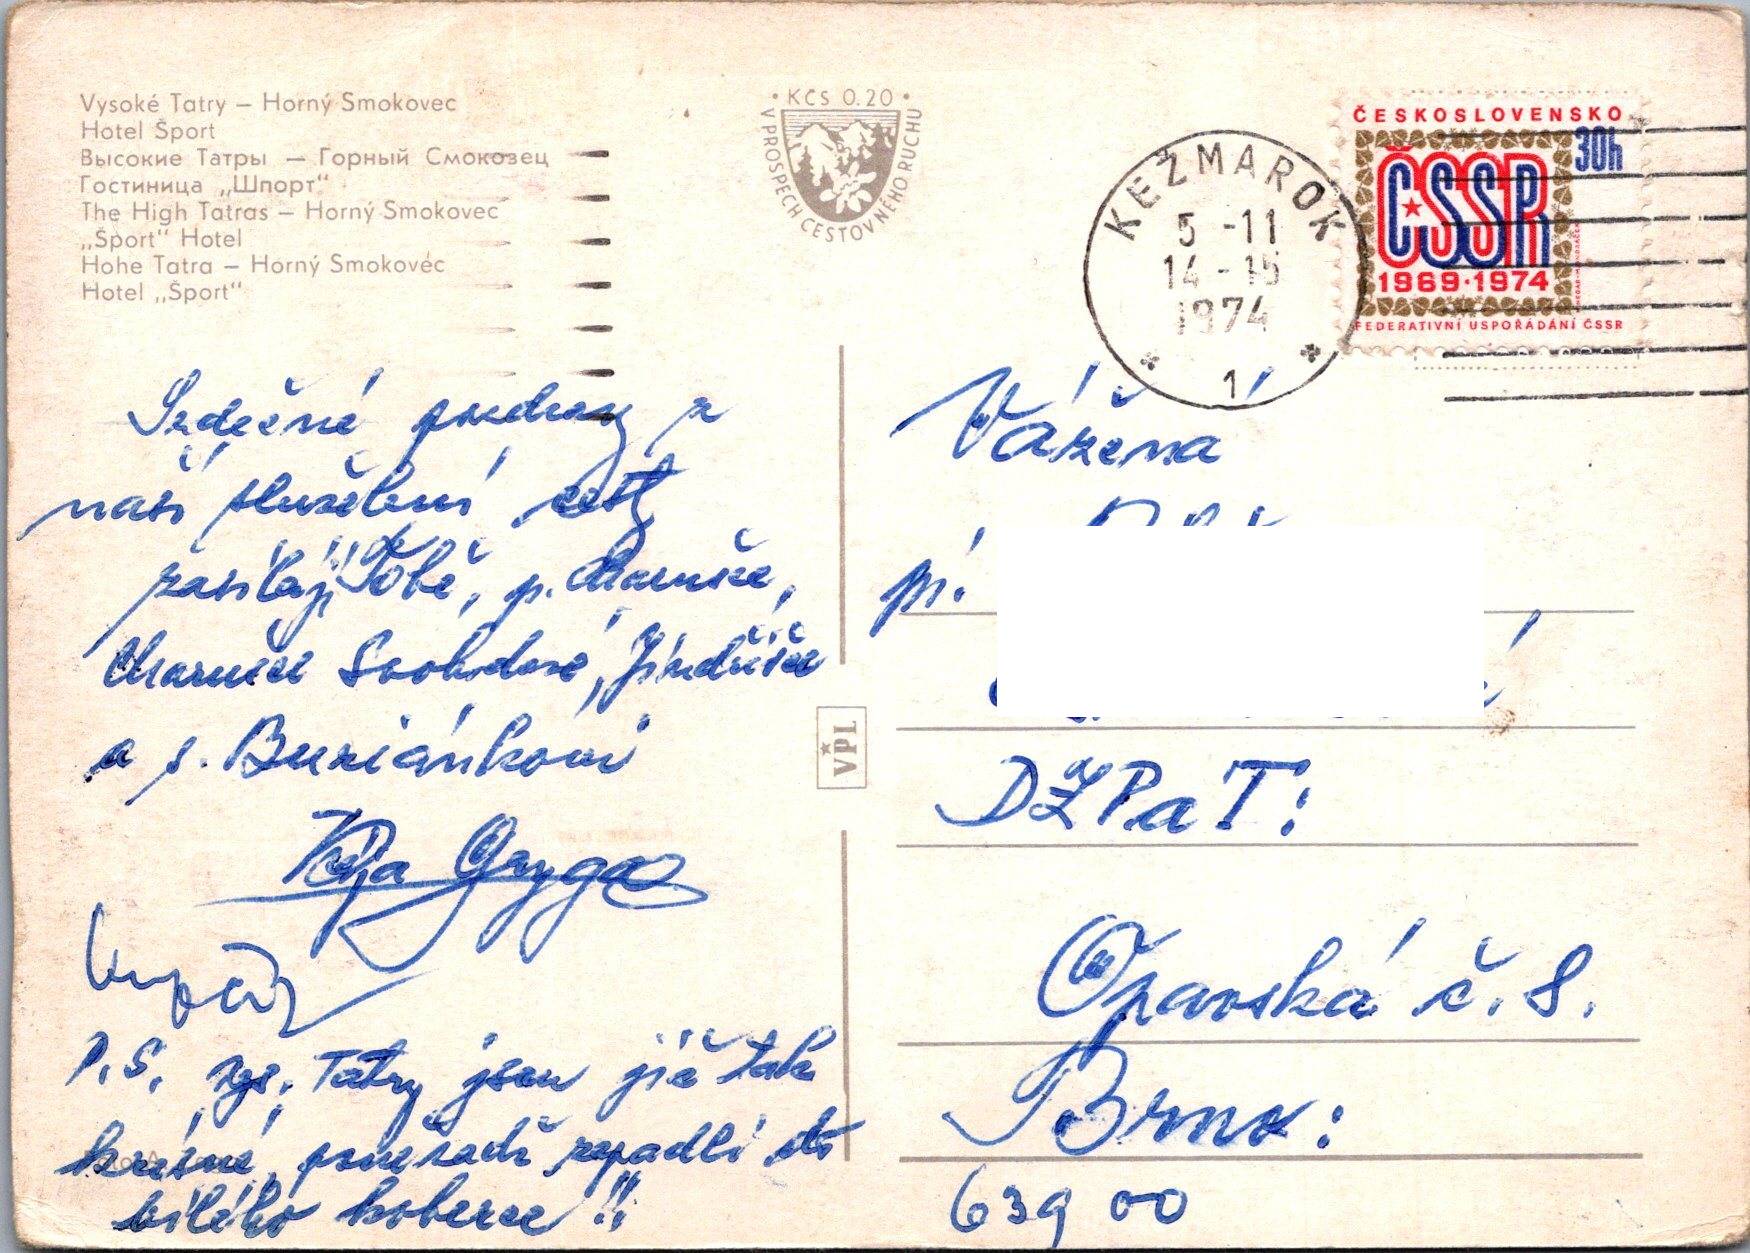 Vysoké Tatry – Horný Smokovec
Hotel Šport
Высокие Татры — Горный Смоковец
Гостиница „Шпорт“
The High Tatras – Horný Smokovec
„Šport“ Hotel
Hohe Tatra – Horný Smokovec
Hotel „Šport“
• KČS 0.20 •
V PROSPECH CESTOVNÉHO RUCHU
KEŽMAROK
5 -11
14 -15
1974
1
ČESKOSLOVENSKO
30h
ČSSR
1969·1974
FEDERATIVNÍ USPOŘÁDÁNÍ ČSSR
Srdečné pozdravy z
naší služební cesty
zasílají Tobě, p. Marušce,
Marušce Svobodové, Jindřišce
a s. Buriánkovi
Gryga
P.S. Tatry jsou již tak
krásné, poněvadž zapadli do
bílého koberce !!
VPL
Vážená
pí.
DŽPaT:
Opavská č. 8.
Brno:
639 00